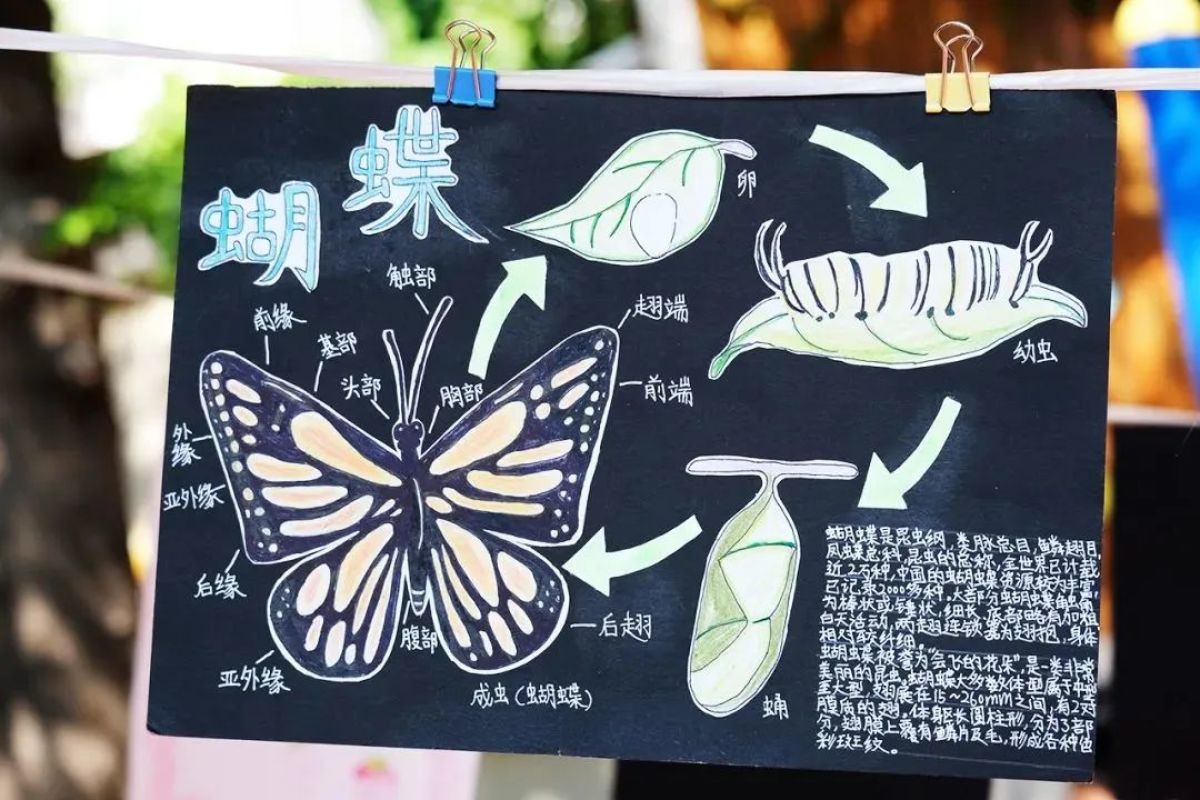 蝴蝶
卵
幼虫
蛹
成虫(蝴蝶)
触部
前缘
基部
头部
胸部
翅端
前端
外缘
亚外缘
后缘
亚外缘
腹部
后翅
蝴蝶是昆虫纲,类脉总目,鳞翅目,
凤蝶总科,昆虫的总称,全世界已计载
近2万种,中国的蝴蝶资源较为丰富,
已记录2000多种。大部分蝴蝶触角
为棒状或锤状,细长,底部略有加粗,
白天活动,两翅连锁器为翅抱,身体
相对较纤细。
蝴蝶被誉为“会飞的花朵”,是一类非常
美丽的昆虫,蝴蝶大多数体型属于中型
至大型,翅展在15~260mm之间,有2对
膜质的翅。体躯长圆柱形,分为3部
分,翅膜上覆有鳞片及毛,形成各种色
彩斑纹。